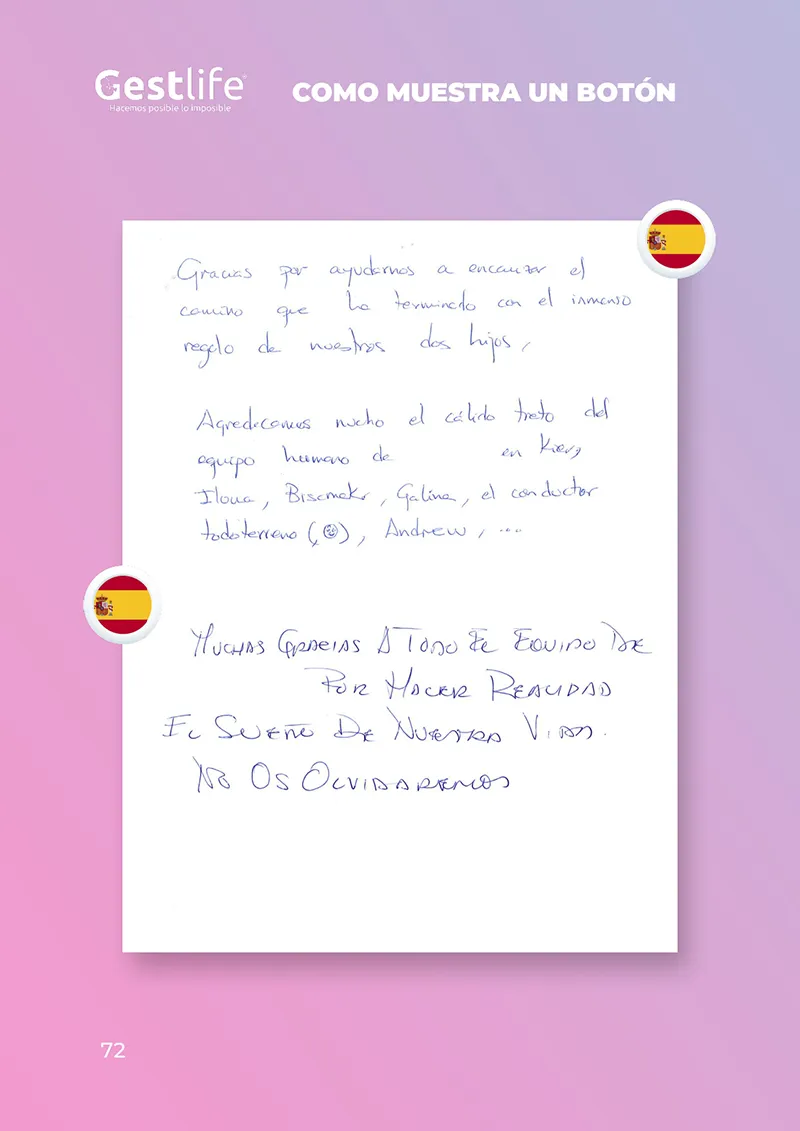 Gestlife
Hacemos posible lo imposible
COMO MUESTRA UN BOTÓN
Gracias por ayudarnos a encauzar el
camino que ha terminado con el inmenso
regalo de nuestros dos hijos,
Agradecemos mucho el cálido trato del
equipo humano de en Kiev,
Ilona, Galina, el conductor
todoterreno (☺), Andrew, ...
MUCHAS GRACIAS A TODO EL EQUIPO DE
POR HACER REALIDAD
EL SUEÑO DE NUESTRA VIDA.
NO OS OLVIDAREMOS
72